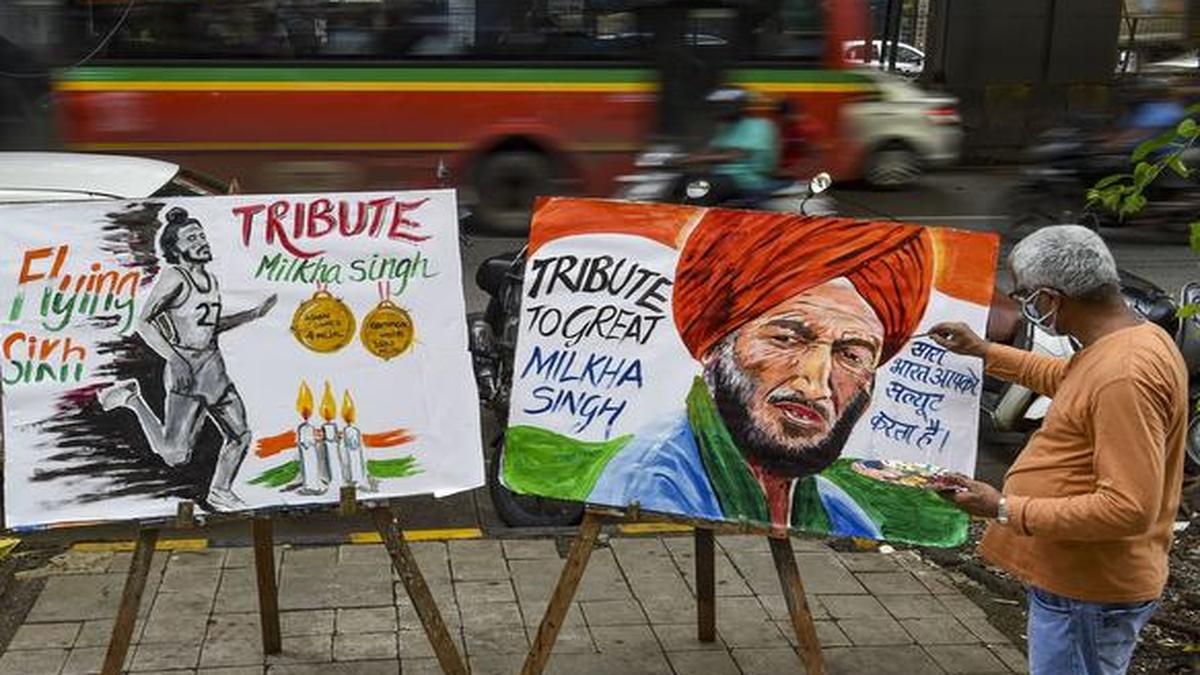 TRIBUTE
Milkha Singh
Flying
Sikh
27
ASIAN
GAMES
4 MEDAL
TRIBUTE
TO GREAT
MILKHA
SINGH
सारा
भारत आपको
सल्यूट
करता है।